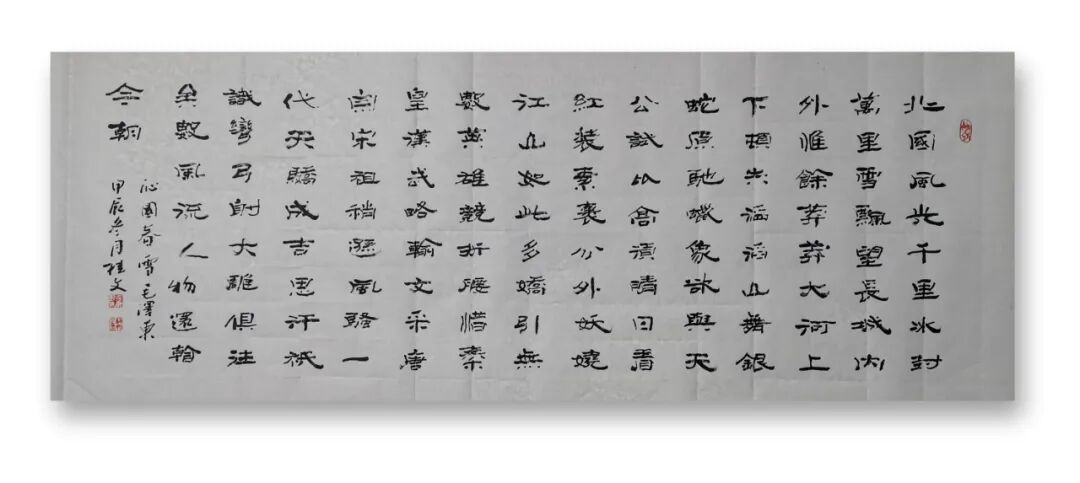 北國風光千里冰封
萬里雪飄望長城內
外惟餘莽莽大河上
下頓失滔滔山舞銀
蛇原馳蠟象欲與天
公試比高須晴日看
紅裝素裹分外妖嬈
江山如此多嬌引無
數英雄競折腰惜秦
皇漢武略輸文采唐
宗宋祖稍遜風騷一
代天驕成吉思汗祇
識彎弓射大雕俱往
矣數風流人物還看
今朝
沁園春雪毛澤東
甲辰冬月桂文